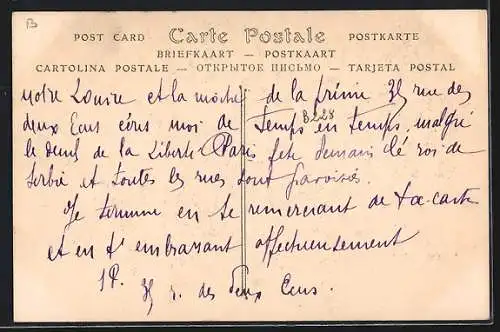 POST CARD Carte Postale POSTKARTE
BRIEFKAART — POSTKAART
CARTOLINA POSTALE — ОТКРЫТОЕ ПИСЬМО — TARJETA POSTAL
B
notre Louise et la moche de la prime 35 rue des
B228
deux Ecus écris moi de temps en temps, malgré
le deuil de la Liberté Paris fete demain le roi de
Serbie et toutes les rues sont pavoisées.
Je termine en te remerciant de ta carte
et en t'embrassant affectueusement
35 r. des deux Ecus.